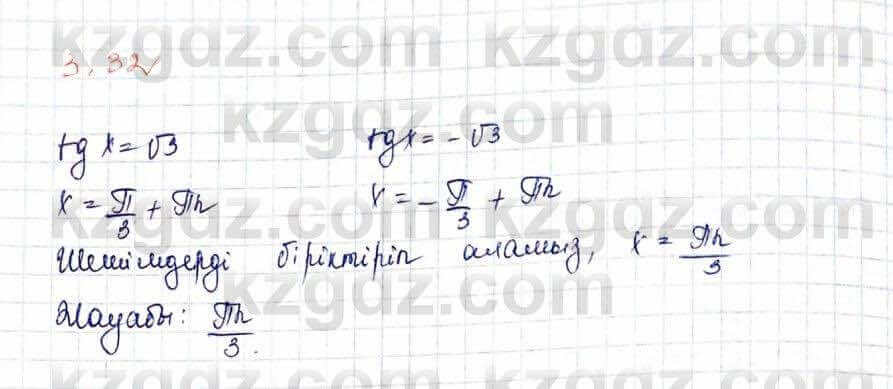 kzgaz.com kzgaz.com
3.32
kzgaz.com
tg x = √3 tg x = - √3
x = π/3 + πn x = - π/3 + πn
kzgaz.com kzgaz.com
Шешімдерді біріктіріп аламыз, x = πn/3
Жауабы: πn/3.
kzgaz.com
kzgaz.com kzgaz.com